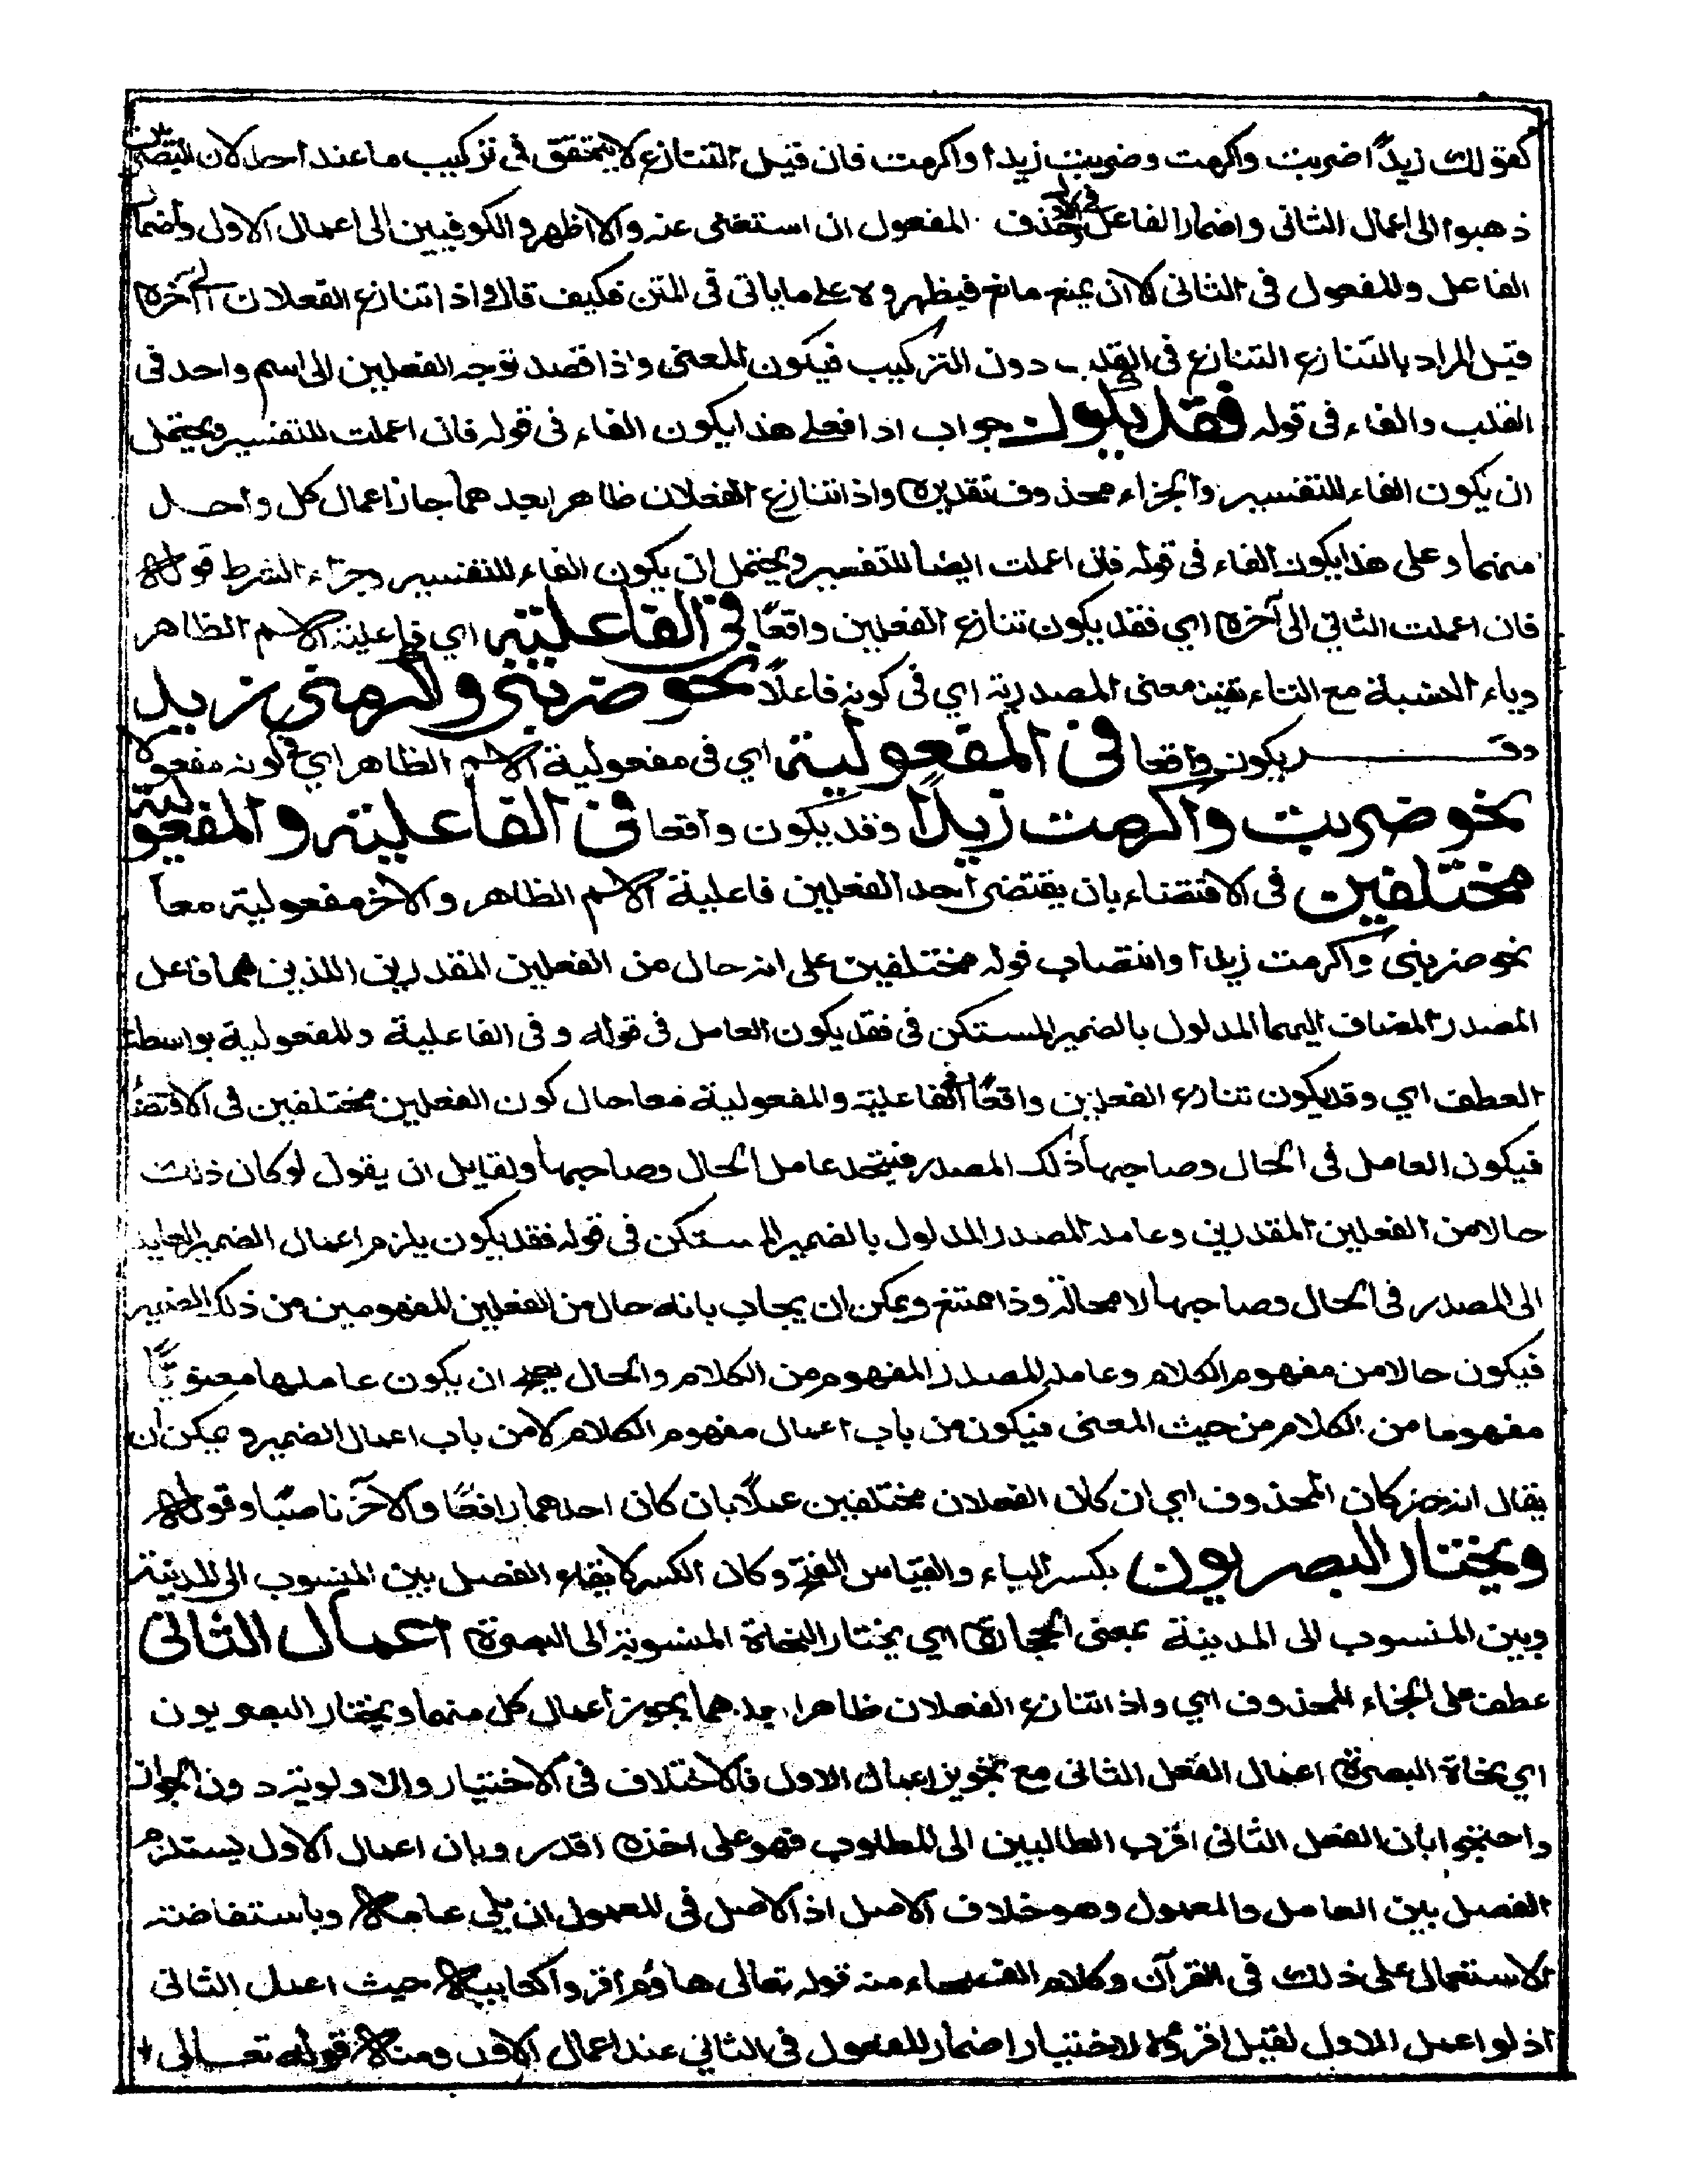 كقولك زيدًا ضربت واكرمت وضربت زيدا واكرمت فان قيل التنازع لا يتحقق في تركيب ما عند احد لان البصريين
ذهبوا الى اعمال الثاني واضمار الفاعل في الاول وحذف المفعول ان استغنى عنه والا اظهر والكوفيين الى اعمال الاول واضمار
الفاعل والمفعول في الثاني الا ان يمنع مانع فيظهر ولا على ما ياتي في المتن فكيف قال واذا تنازع الفعلان الى آخره
قيل المراد بالتنازع التنازع في القلب دون التركيب فيكون المعنى واذا قصد توجه الفعلين الى اسم واحد في
القلب والفاء في قوله فقد يكون جواب اذا فعلى هذا يكون الفاء في قوله فان اعملت للتفسير ويحتمل
ان يكون الفاء للتفسير والجزاء محذوف تقديره واذا تنازع الفعلان ظاهرا بعدهما جاز اعمال كل واحد
منهما وعلى هذا يكون الفاء في قوله فان اعملت ايضا للتفسير ويحتمل ان يكون الفاء للتفسير وجزاء الشرط قوله
فان اعملت الثاني الى آخره اي فقد يكون تنازع الفعلين واقعًا في الفاعلية اي فاعلية الاسم الظاهر
وياء النسبة مع التاء تفيد معنى المصدرية اي في كونه فاعلًا نحو ضربني واكرمني زيد
وقد يكون واقعا في المفعولية اي في مفعولية الاسم الظاهر اي في كونه مفعولا
نحو ضربت واكرمت زيدًا وقد يكون واقعا في الفاعلية والمفعولية
مختلفين في الاقتضاء بان يقتضى احد الفعلين فاعلية الاسم الظاهر والاخر مفعولية معا
نحو ضربني واكرمت زيدا وانتصاب قوله مختلفين على انه حال من الفعلين المقدرين اللذين هما فاعل
المصدر المضاف اليهما المدلول بالضمير المستكن في فقد يكون العامل في قوله وفي الفاعلية والمفعولية بواسطة
العطف اي وقد يكون تنازع الفعلين واقعًا في الفاعلية والمفعولية معا حال كون الفعلين مختلفين في الاقتضاء
فيكون العامل في الحال وصاحبها ذلك المصدر فيتحد عامل الحال وصاحبها ولقايل ان يقول لو كان ذلك
حالا من الفعلين المقدرين وعامله المصدر المدلول بالضمير المستكن في قوله فقد يكون يلزم اعمال الضمير العايد
الى المصدر في الحال وصاحبها لا محالة وذا ممتنع ويمكن ان يجاب بانه حال من الفعلين المفهومين من ذلك الضمير
فيكون حالا من مفهوم الكلام وعامله المصدر المفهوم من الكلام والحال يجوز ان يكون عاملها معنويًّا
مفهوما من الكلام من حيث المعنى فيكون من باب اعمال مفهوم الكلام لا من باب اعمال الضمير ويمكن ان
يقال انه خبر كان المحذوف اي ان كان الفعلان مختلفين عملًا بان كان احدهما رافعًا والآخر ناصبًا وقوله
ويختار البصريون بكسر الباء والقياس الفتح وكان الكسر لابقاء الفصل بين المنسوب الى المدينة
وبين المنسوب الى المدينة بمعنى الحجارة اي يختار النحاة المنسوبة الى البصرة اعمال الثاني
عطف على الجزاء المحذوف اي واذا تنازع الفعلان ظاهرا بعدهما يجوز اعمال كل منهما ويختار البصريون
اي نحاة البصرة اعمال الفعل الثاني مع تجويز اعمال الاول فالاختلاف في الاختيار والاولوية دون الجواز
واحتجوا بان الفعل الثاني اقرب الطالبين الى المطلوب فهو على اخذه اقدر وبان اعمال الاول يستلزم
الفصل بين العامل والمعمول وهو خلاف الاصل اذ الاصل في المعمول ان يلي عامله وباستفاضة
الاستعمال على ذلك في القرآن وكلام الفصحاء منه قوله تعالى هاؤم اقرواكتابيه حيث اعمل الثاني
اذ لو اعمل الاول لقيل اقرؤه لاختيار اضمار المفعول في الثاني عند اعمال الاول ومنه قوله تعالى